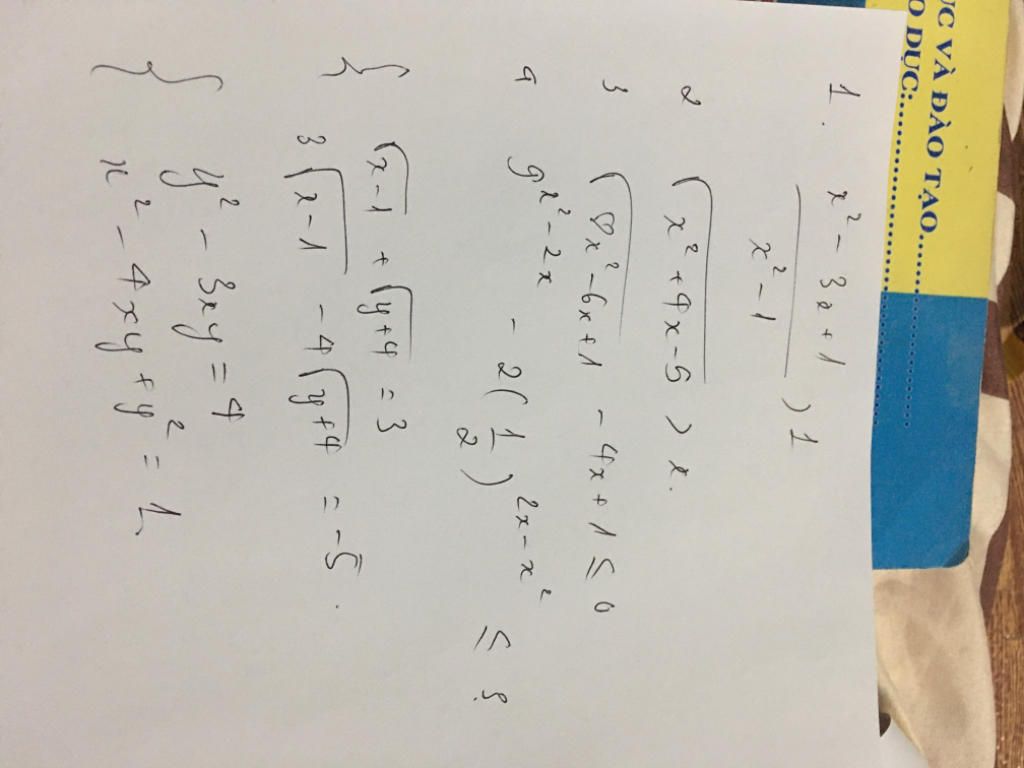 ỤC VÀ ĐÀO TẠO
O DỤC:
1. (x² - 3x + 1)/(x² - 1) > 1
2 √(x² + 4x - 5) > x.
3 √(8x² - 6x + 1) - 4x + 1 ≤ 0
4 9^(x² - 2x) - 2(1/2)^(2x - x²) ≤ 3
{ √(x - 1) + √(y + 4) = 3
3√(x - 1) - 4√(y + 4) = -5.
{ y² - 3xy = 4
x² - 4xy + y² = 1